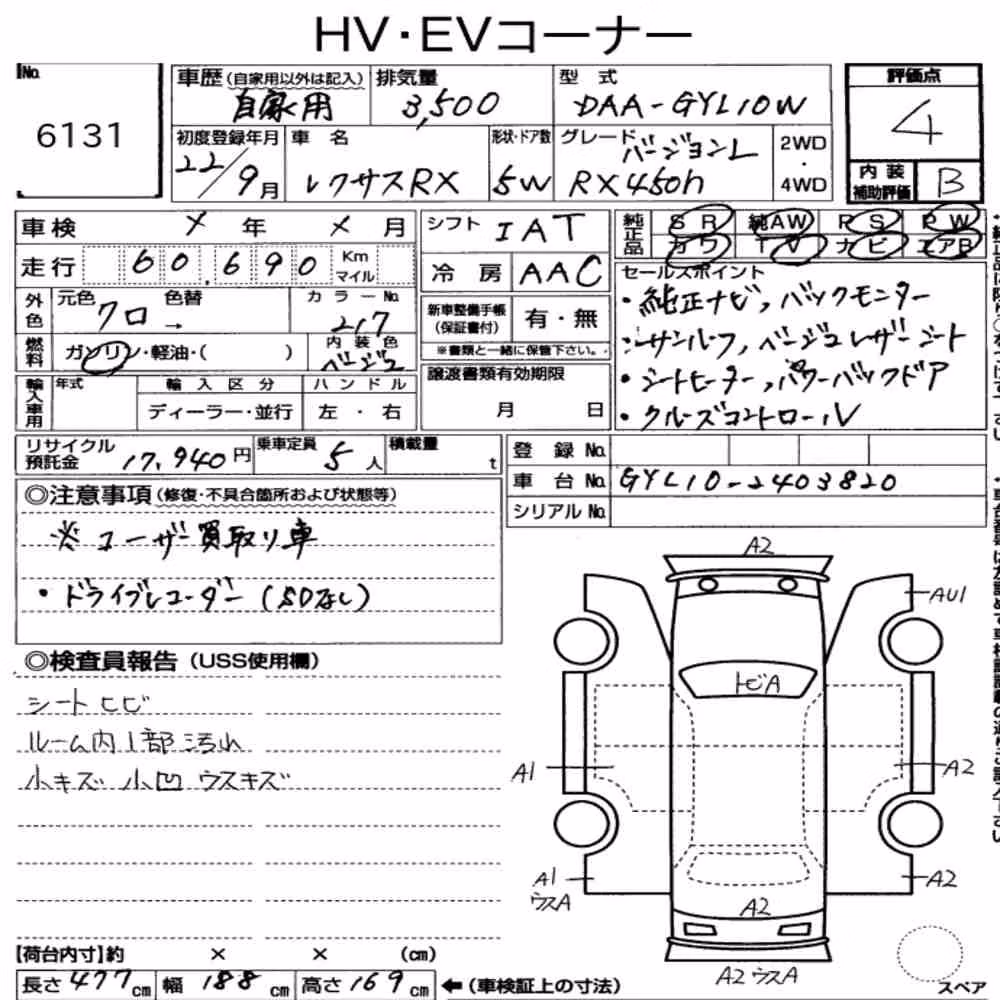 HV・EVコーナー
No. 6131
車歴 (自家用以外は記入) 自家用
排気量 3,500
型式 DAA-GYL10W
評価点 4
初度登録年月 22/9月
車名 レクサスRX
形状・ドア数 5W
グレード バージョンL RX450h
2WD・4WD
内装補助評価 B
車検 × 年 × 月
シフト IAT
純正品 SR 純AW PS PW
カワ TV ナビ エアB
走行 60,690 Km マイル
冷房 AAC
セールスポイント
・純正ナビ, バックモニター
・サンルーフ, ベージュレザーシート
・シートヒーター, パワーバックドア
・クルーズコントロール
外色 元色 クロ → 色替
カラーNo. 217
新車整備手帳(保証書付) 有・無
※書類と一緒に保管下さい。
燃料 ガソリン・軽油・( )
内装色 ベージュ
輸入車用 年式 輸入区分 ハンドル
ディーラー・並行 左・右
譲渡書類有効期限
月 日
リサイクル預託金 17,940円
乗車定員 5人
積載量 t
登録No.
車台No. GYL10-2403820
シリアルNo.
◎注意事項(修復・不具合箇所および状態等)
※ユーザー買取り車
・ドライブレコーダー(SDなし)
◎検査員報告(USS使用欄)
シートヒビ
ルーム内1部汚れ
小キズ 小凹 ウスキズ
A2
AU1
トビA
A1
A2
A1
ウスA
A2
A2
A2 ウスA
スペア
【荷台内寸】約 × × (cm)
長さ 477cm 幅 188cm 高さ 169cm ←(車検証上の寸法)